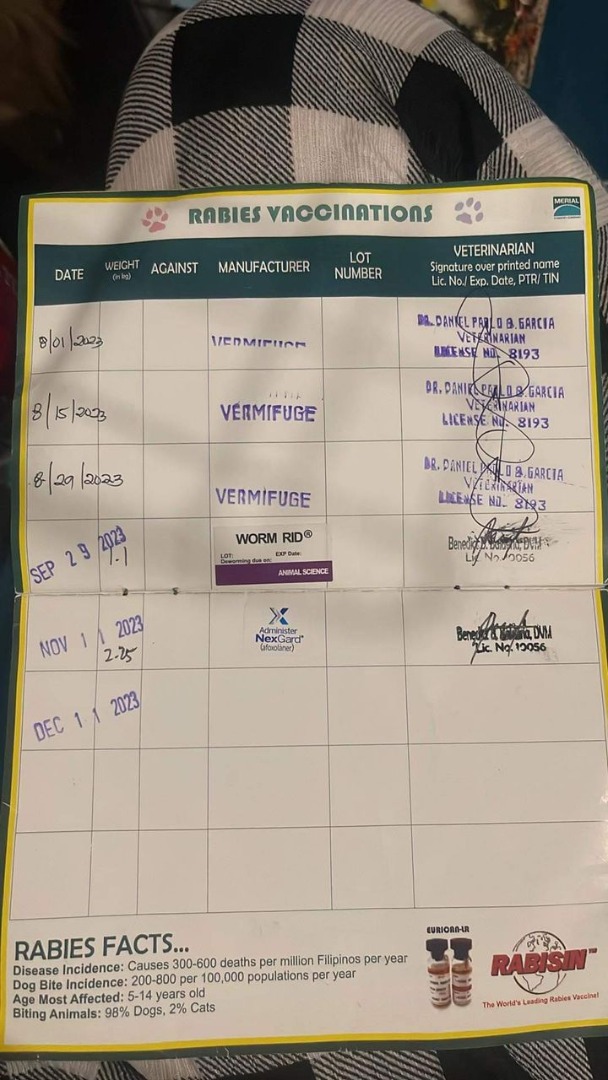 RABIES VACCINATIONS
MERIAL
DATE
WEIGHT
(in kg)
AGAINST
MANUFACTURER
LOT
NUMBER
VETERINARIAN
Signature over printed name
Lic. No./ Exp. Date, PTR/ TIN
8/01/2023
VERMIFUGE
DR. DANIEL PABLO B. GARCIA
VETERINARIAN
LICENSE NO. 8193
8/15/2023
VERMIFUGE
DR. DANIEL PABLO B. GARCIA
VETERINARIAN
LICENSE NO. 8193
8/29/2023
VERMIFUGE
DR. DANIEL PABLO B. GARCIA
VETERINARIAN
LICENSE NO. 8193
SEP 29 2023
1.1
WORM RID®
LOT:
EXP Date:
Deworming due on:
ANIMAL SCIENCE
DVM
Lic. No. 10056
NOV 11 2023
2.25
Administer
NexGard®
(afoxolaner)
DVM
Lic. No. 10056
DEC 11 2023
RABIES FACTS...
Disease Incidence: Causes 300-600 deaths per million Filipinos per year
Dog Bite Incidence: 200-800 per 100,000 populations per year
Age Most Affected: 5-14 years old
Biting Animals: 98% Dogs, 2% Cats
EURICAN-LR
RABISIN™
The World's Leading Rabies Vaccine!